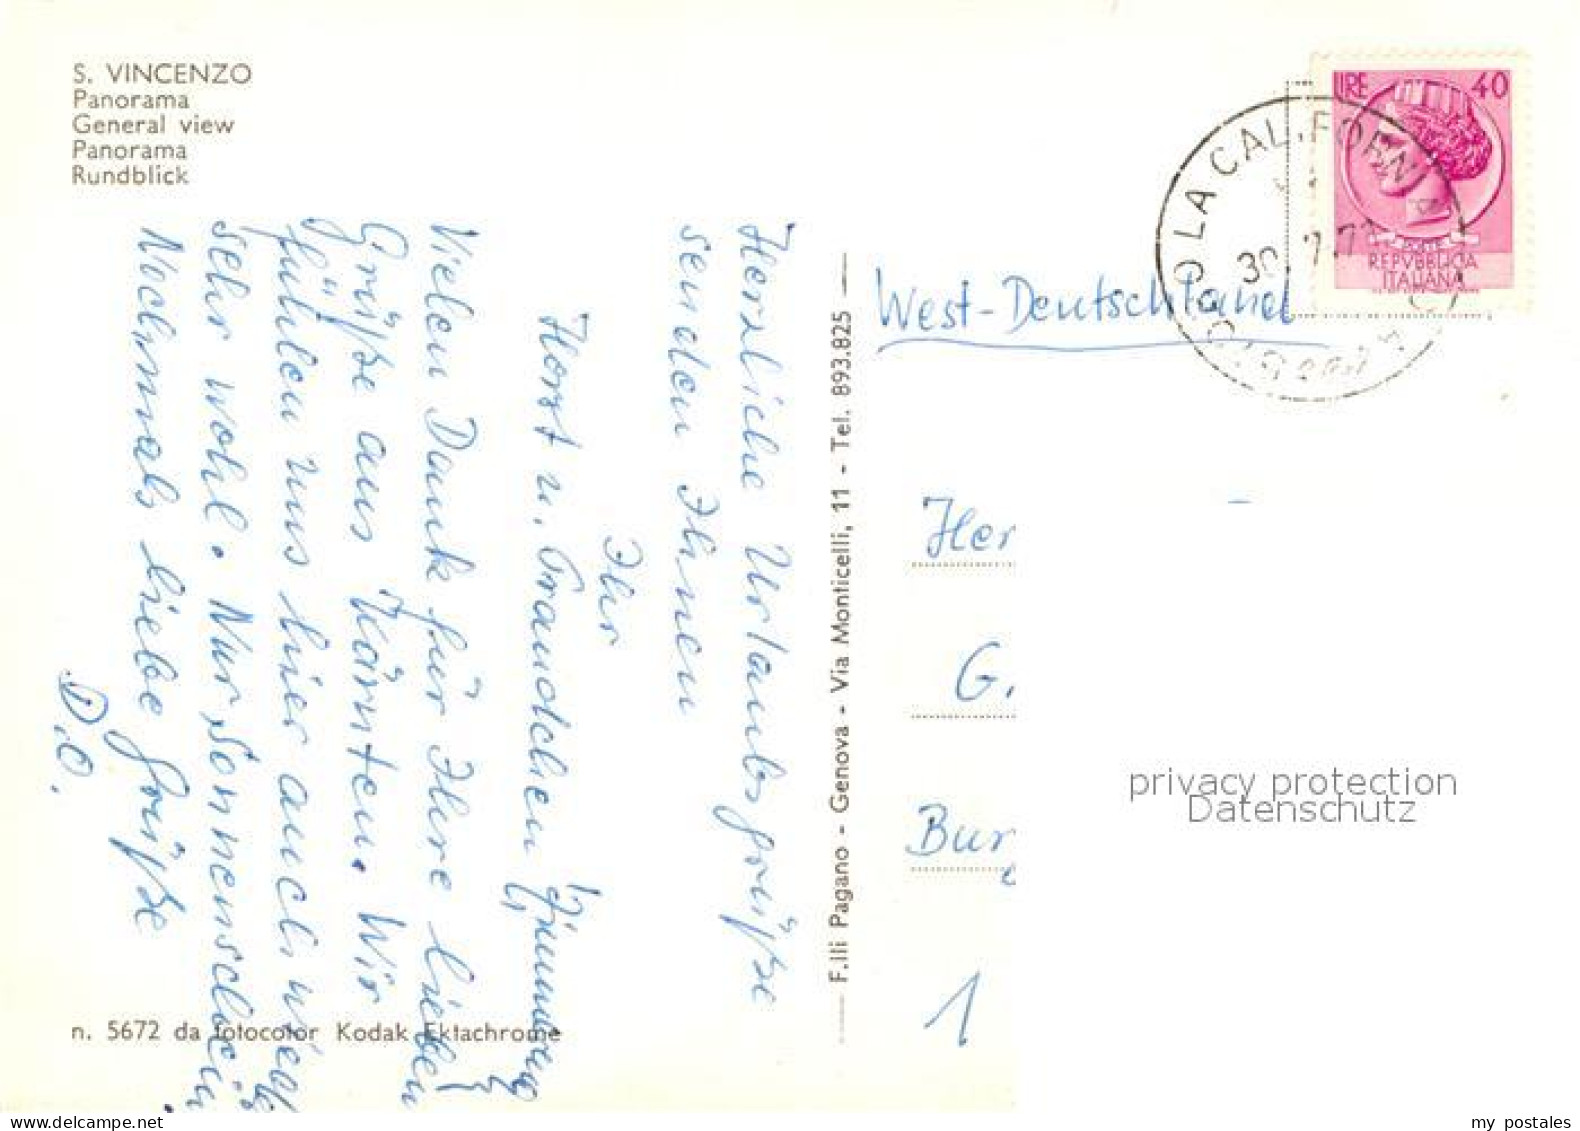 S. VINCENZO
Panorama
General view
Panorama
Rundblick
Herzliche Urlaubsgrüße
senden Ihnen
Ihr
Horst u.
Vielen Dank für Ihre lieben
Grüße aus Kärnten. Wir
fühlen uns hier auch
sehr wohl. Nur Sonnenschein
Nochmals liebe Grüße
D.O.
n. 5672 da fotocolor Kodak Ektachrome
F.lli Pagano - Genova - Via Monticelli, 11 - Tel. 893.825
LIRE 40
POSTE
REPVBBLICA
ITALIANA
LA CALIFORNIA
30.7.7
West-Deutschland
Her
G.
Bur
1
privacy protection
Datenschutz
my postales